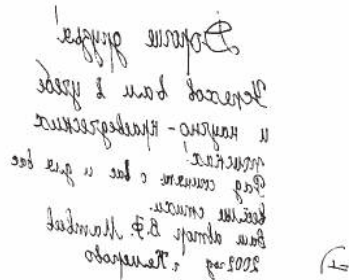 Дорогие друзья!
Успехов вам в учёбе
и научно-краеведческих
поисках.
Рад
весёлые стихи.
Ваш автор В.Ф. Матвеев
2002 год г. Кемерово